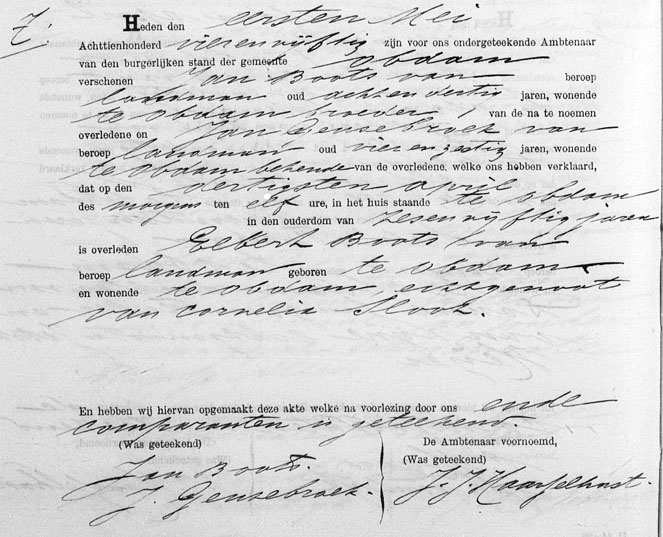 7.
Heden den eersten Mei
Achttienhonderd vierenvijftig zijn voor ons ondergeteekende Ambtenaar
van den burgerlijken stand der gemeente Obdam
verschenen Jan Boots van beroep
landman oud achtendertig jaren, wonende
te obdam broeder van de na te noemen
overledene en Jan Gensebroek van
beroep landman oud vierenzestig jaren, wonende
te obdam bekende van de overledene, welke ons hebben verklaard,
dat op den dertigsten april
des morgens ten elf ure, in het huis staande te obdam
in den ouderdom van zevenvijftig jaren
is overleden Elbert Boots van
beroep landman geboren te obdam
en wonende te obdam echtgenoot
van cornelia Slook.
En hebben wij hiervan opgemaakt deze akte welke na voorlezing door ons ende
comparanten is geteekend.
(Was geteekend)
Jan Boots.
J. Gensebroek.
De Ambtenaar voornoemd,
(Was geteekend)
J. J. Haazelhorst.